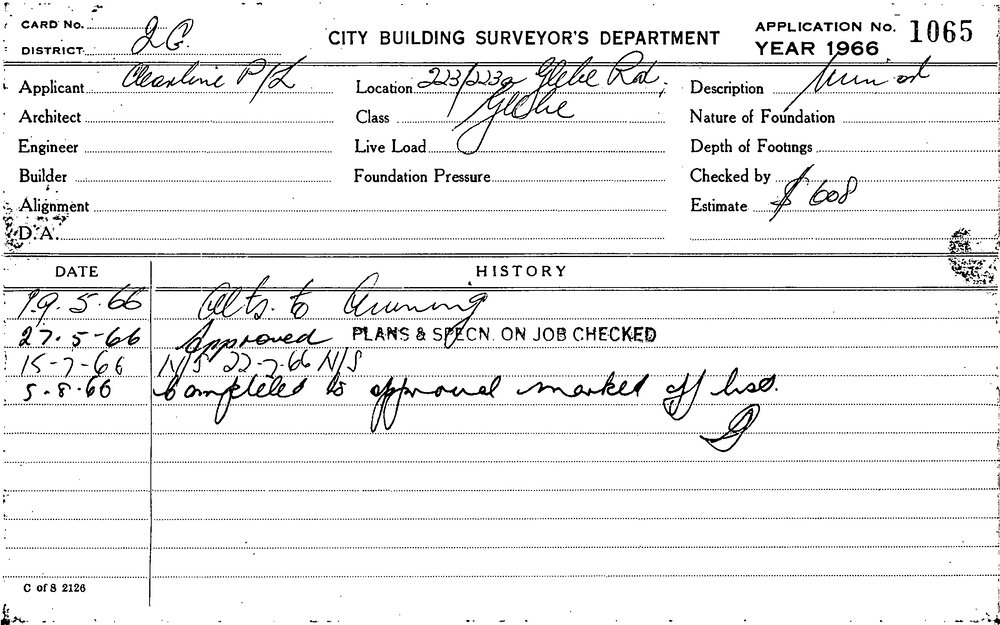 CARD No.
DISTRICT 2G.
CITY BUILDING SURVEYOR'S DEPARTMENT
APPLICATION No. 1065
YEAR 1966
Applicant Clearline P/L
Location 223/223a Glebe Rd,
Glebe
Description
Architect
Class
Nature of Foundation
Engineer
Live Load
Depth of Footings
Builder
Foundation Pressure
Checked by
Alignment
Estimate $ 608
D.A.
DATE HISTORY
19.5.66 Alts. to Awning
27.5-66 Approved PLANS & SPECN. ON JOB CHECKED
15-7-66 N/S 22-7-66 N/S
5.8.66 Completed to approval marked off list.
C of S 2126